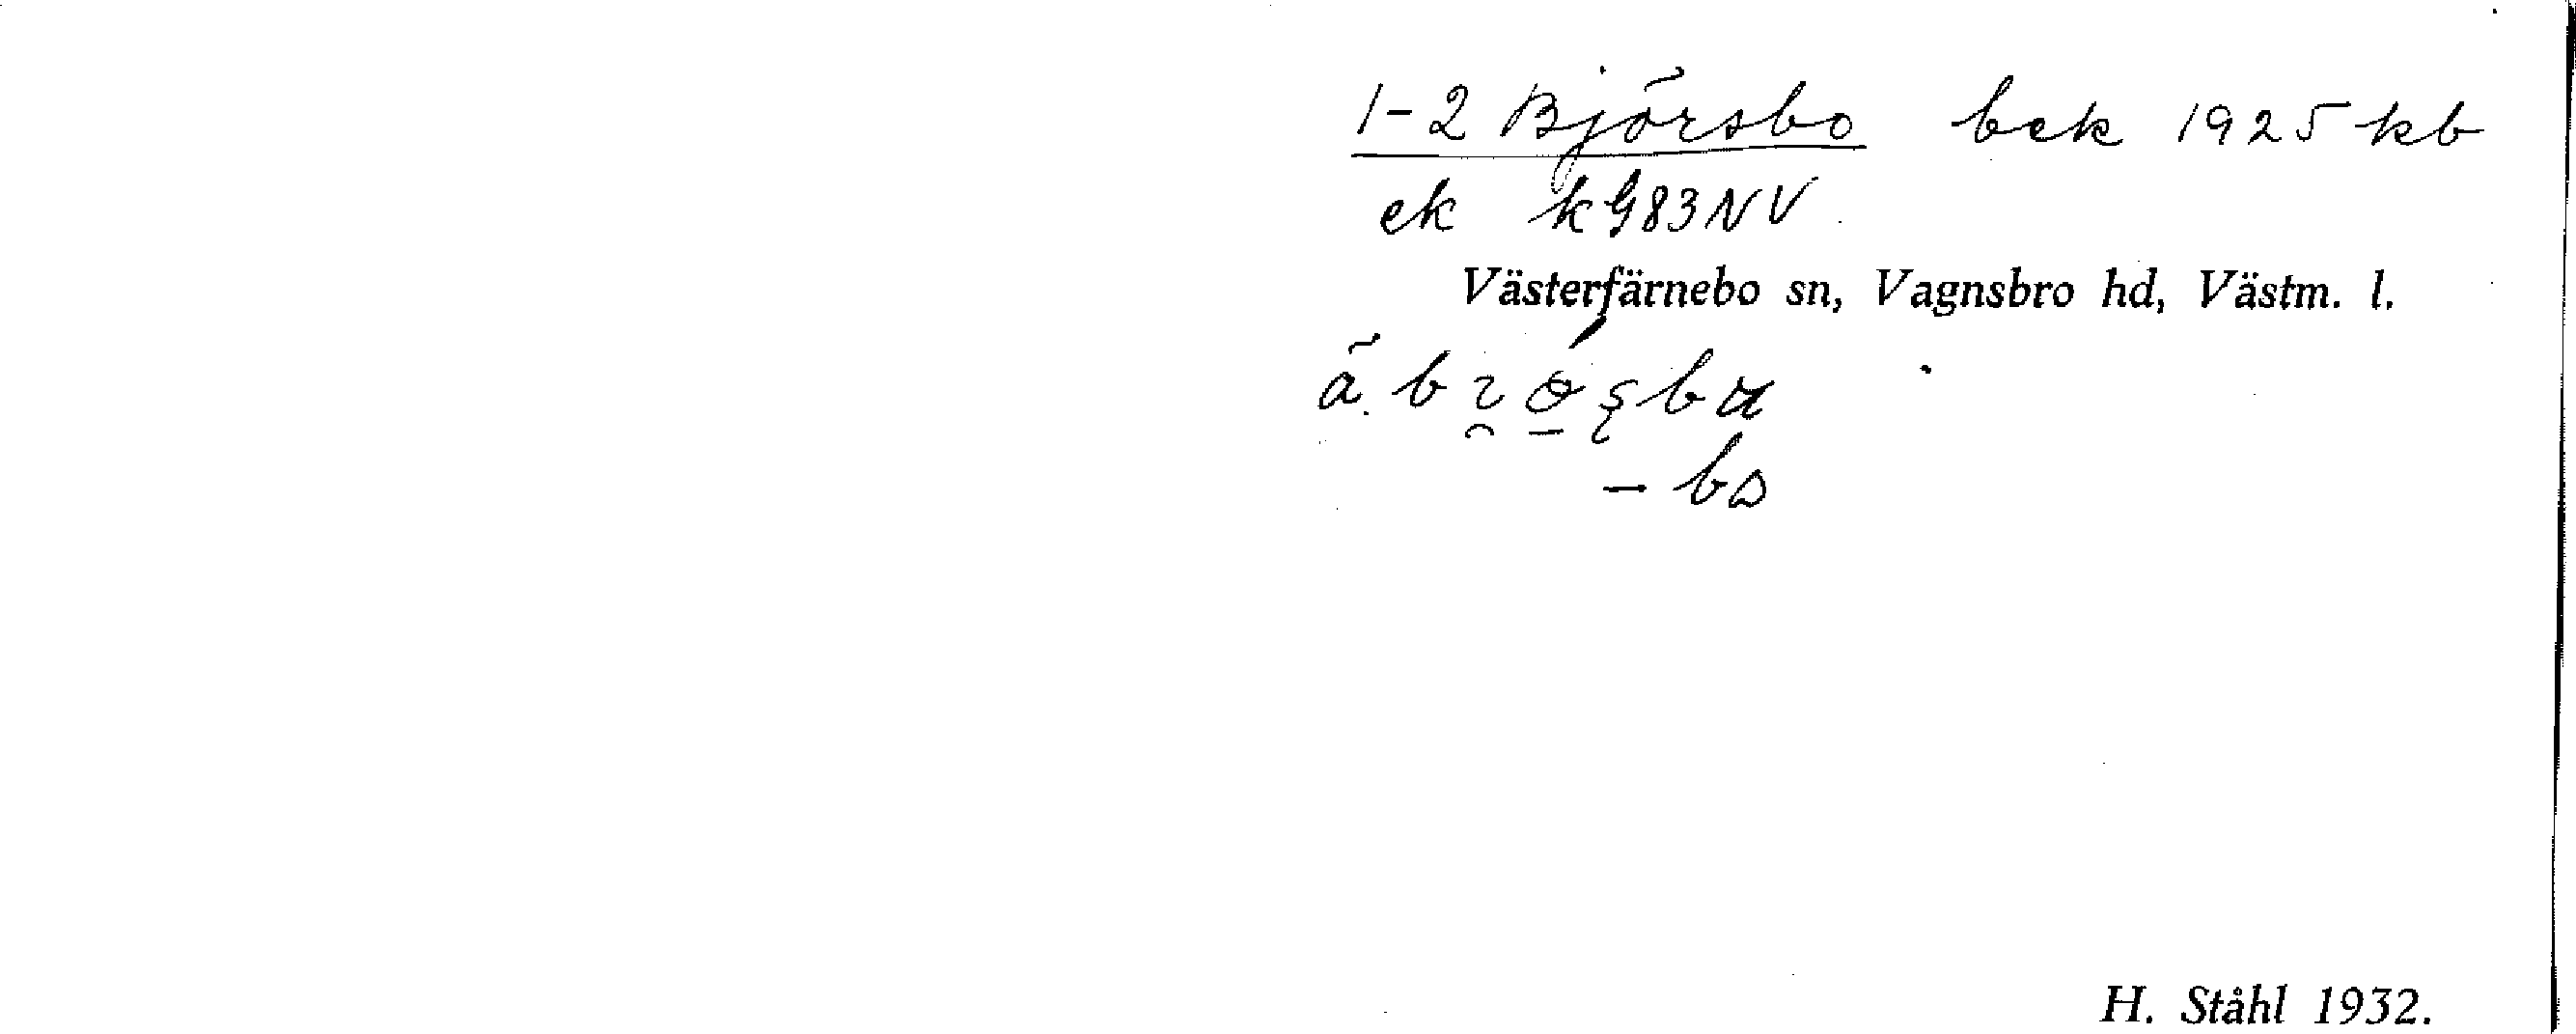 1-2 Björsbo bek 1925 kb
ek kG83NV
Västerfärnebo sn, Vagnsbro hd, Västm. l.
H. Ståhl 1932.